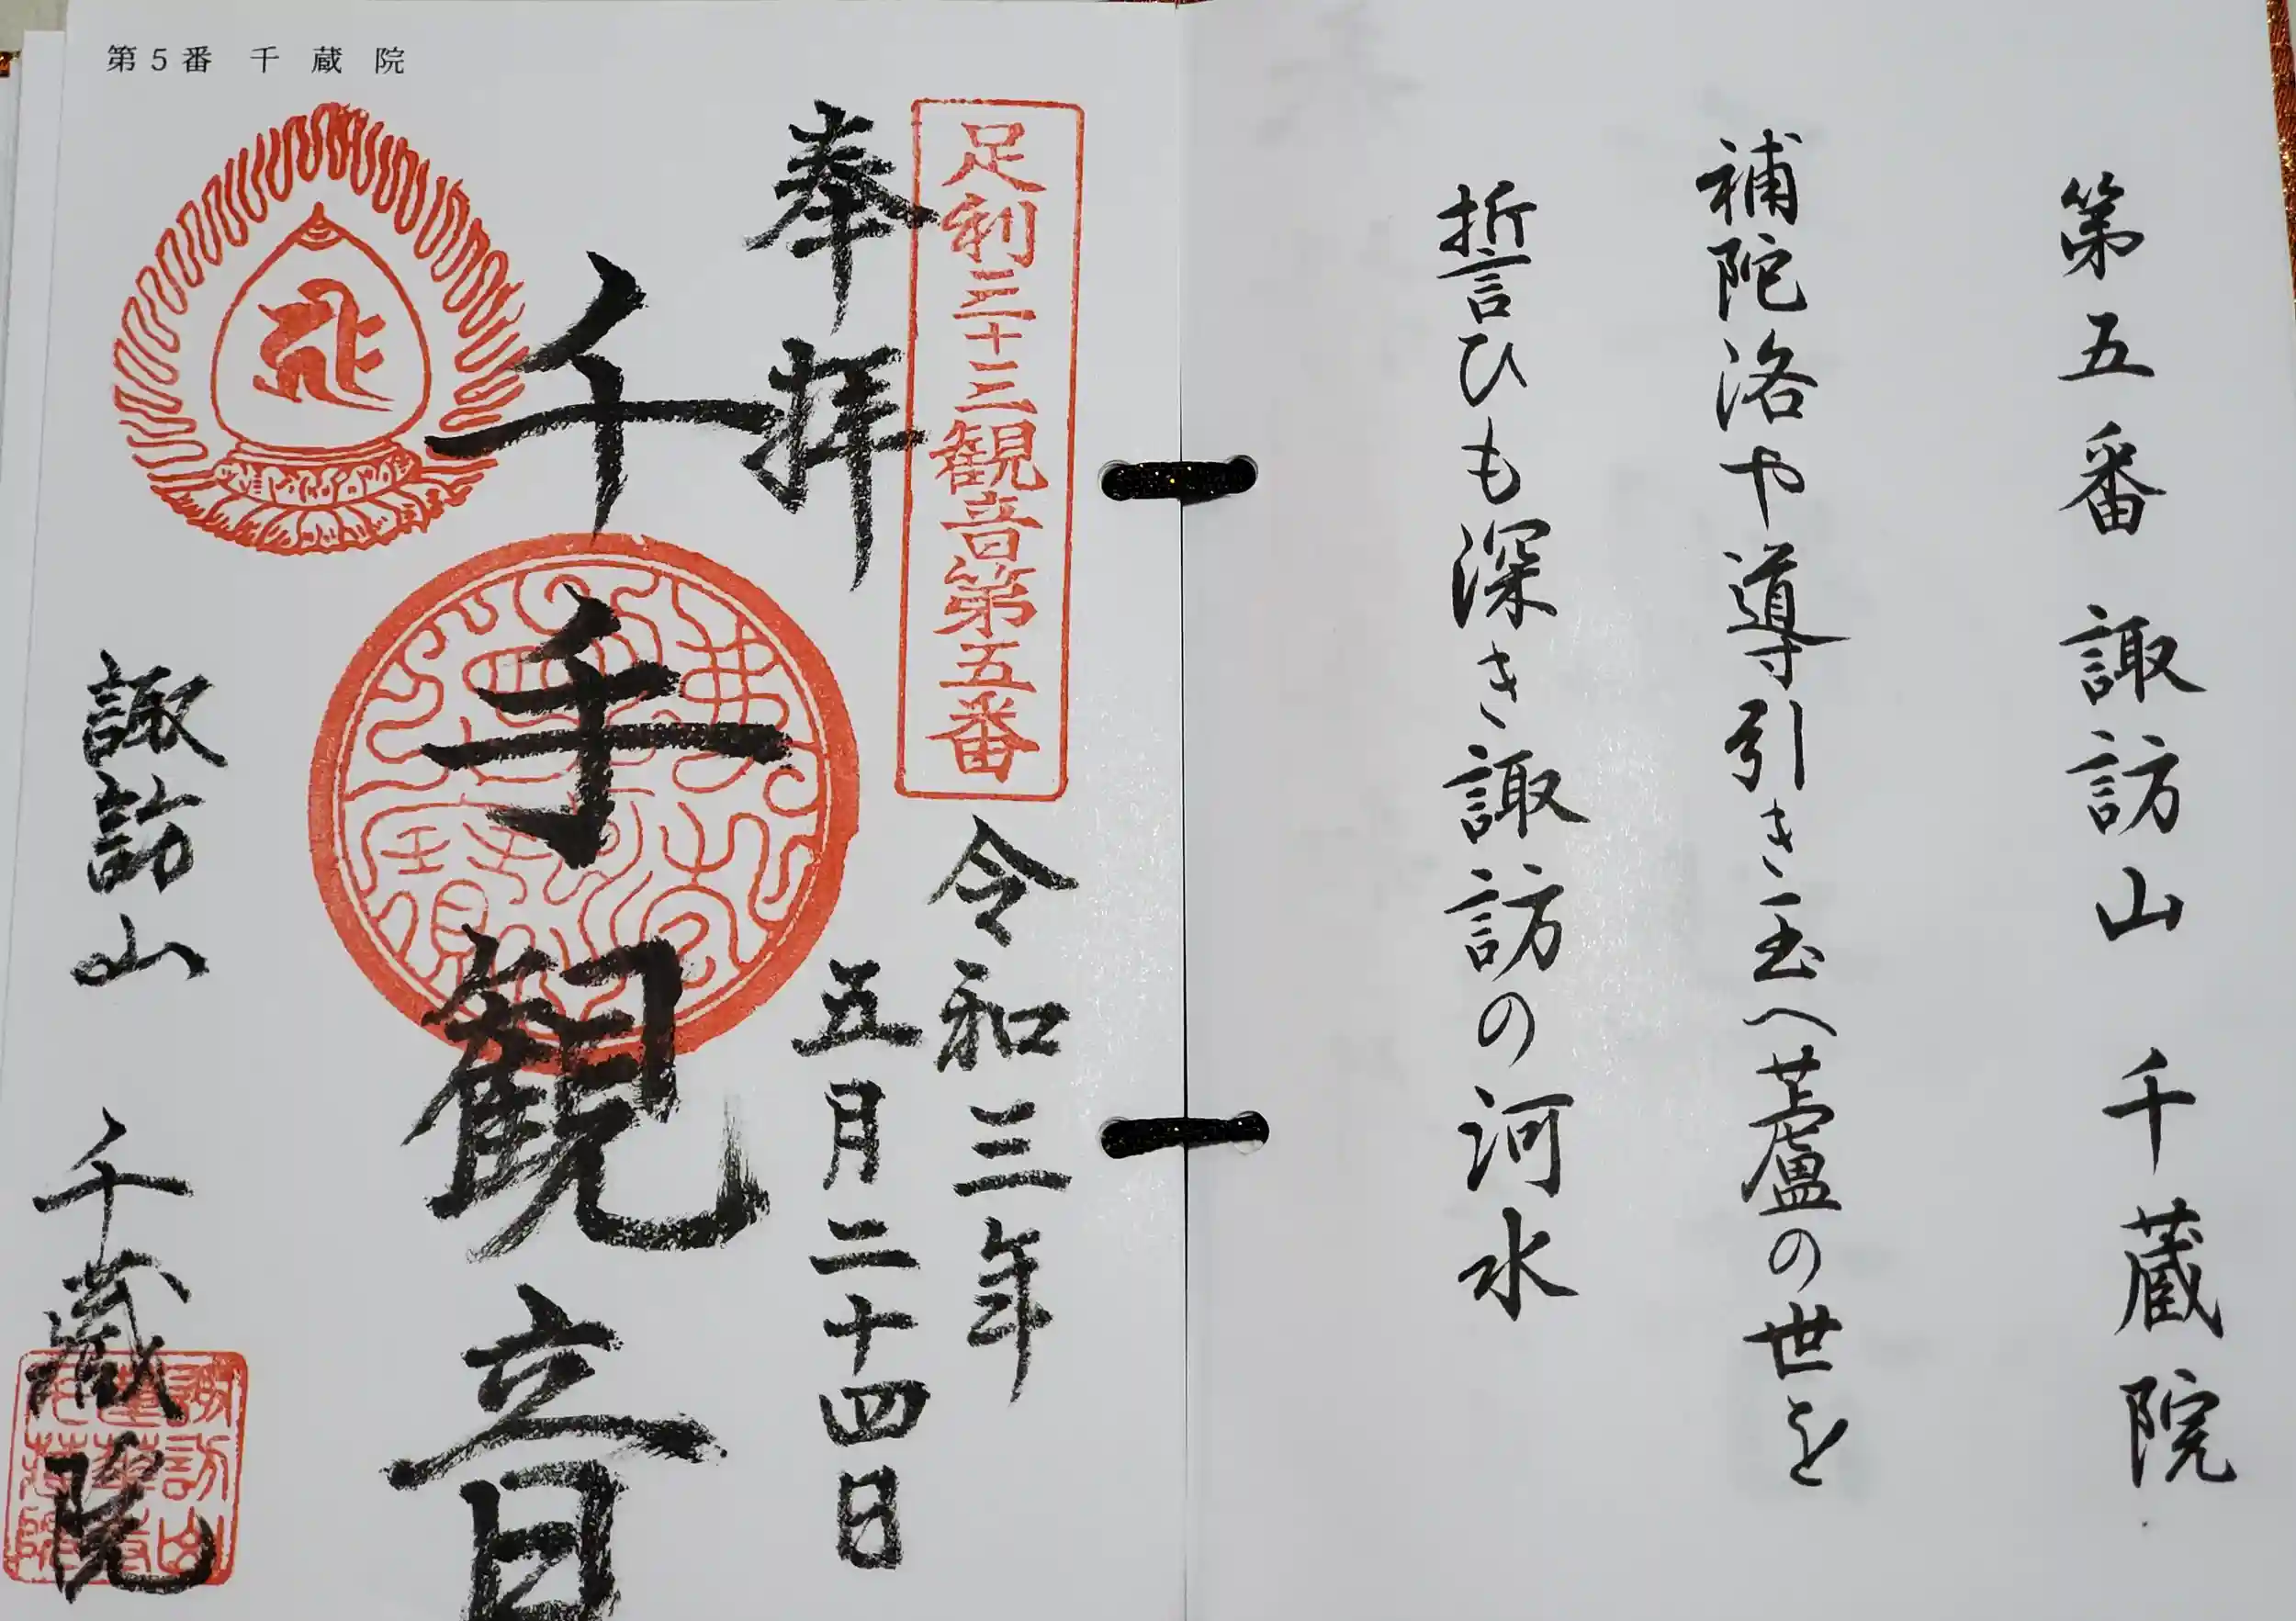 第五番 諏訪山 千蔵院
補陀洛や導引き玉へ蘆の世を
誓ひも深き諏訪の河水
第5番 千蔵院
足利三十三観音第五番
奉拝
令和三年
五月二十四日
千手観音
諏訪山 千蔵院
諏訪山